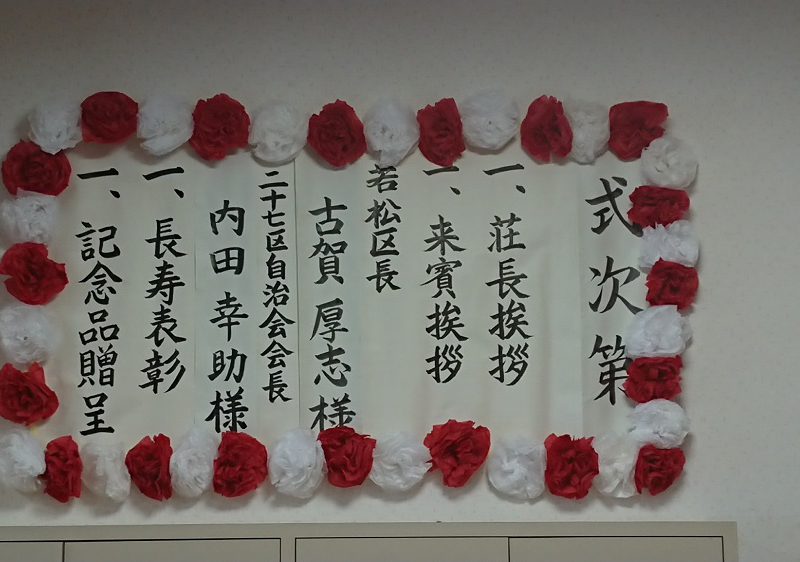 式次第
一、荘長挨拶
一、来賓挨拶
若松区長
古賀厚志様
二十七区自治会会長
内田幸助様
一、長寿表彰
一、記念品贈呈